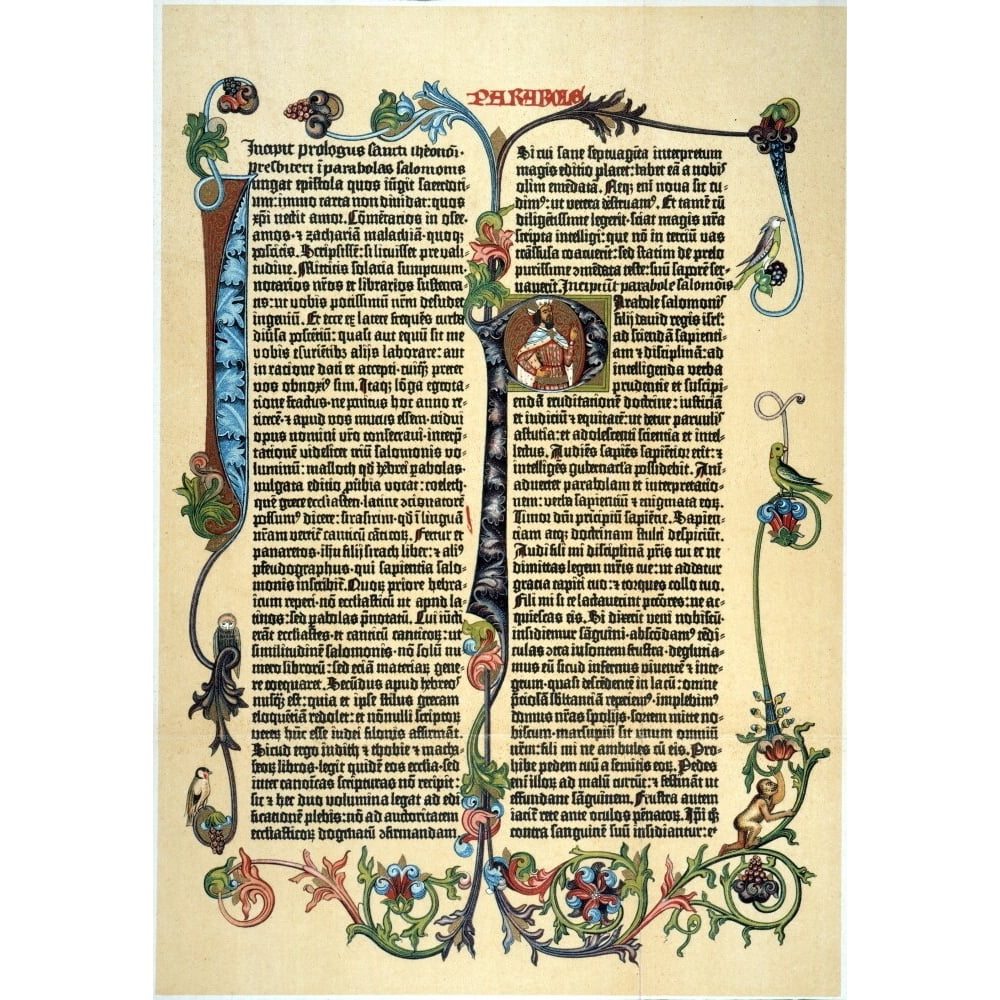 PARABOLE
Incipit prologus sancti iheronimi
presbiteri i parabolas salomonis
Iungat epistola quos iūgit sacerdoti-
um: immo carta non dividat: quos
xp̄i nectit amor. Cōmētarios in osee.
amos. ⁊ zachariā malachiā. quoqȝ
poscitis. Scripsissē: si licuisset pre vali-
tudine. Mittitis solacia sumptuum.
notarios nr̄os et librarios sustenta-
tis: ut vobis potissimū nr̄m desudet
ingeniū. Et ecce ex latere frequēs turba
diūsa poscētiū: quasi aut equū sit me
vobis esurientibȝ alijs laborare: aut
in racione dati et accepti. cuiqȝ preter
vos obnoxiꝰ sim. Itaqȝ lōga egrota-
tione fractus. ne penitus hoc anno re-
ticerē. ⁊ apud vos mutus essem. tridui
opus nomini vr̄o consecraui. interp̄-
tationē videlicet triū salomonis vo-
luminū: masloth qd̄ hebrei p̱abolas.
vulgata editio p̱uerbia vocat: coeleth.
quē grece ecclesiasten. latine ↄcionatorē
possumꝰ dicere: sirasirim. qd̄ i linguā
nr̄am vertit᷑ canticū cāticoꝝ. Fertur et
panaretos. ihu filij sirach liber: ⁊ aliꝰ
pseudographus. qui sapientia salo-
monis inscribit᷑. Quoꝝ priorē hebra-
icum reperi. nō ecclesiasticū ut apud la-
tinos: sed p̱abolas p̄notatū. Cui iūcti
erāt ecclesiastes. et canticū canticoꝝ: ut
similitudinē salomonis. nō solū nu-
mero librorū: sed etiā materiaꝝ gene-
re coequaret. Secūdus apud hebreos
nusqȝ est: quia et ipse stilus grecam
eloquētiā redolet: et nōnulli scriptoꝝ
veteꝝ hūc esse iudei filonis affirmāt.
Sicut ergo iudith ⁊ thobie ⁊ macha-
beoꝝ libros. legit quidē eos ecclesia. sed
inter canoicas scripturas nō recipit:
sic ⁊ hec duo volumina legat ad edi-
ficationē plebis: nō ad auctoritatem
ecclesiasticoꝝ dogmatū ↄfirmandam.
Si cui sane septuaginta interpretum
magis editio placet: habet eā a nobis
olim emēdatā. Neqȝ eni noua sic cu-
dimꝰ: ut vetera destruamꝰ. Et tamē cū
diligētissime legerit. sciat magis nr̄a
scripta intelligi: que nō in terciū vas
trāsfusa coacuerīt: sed statim de prelo
purissime ↄmēdata teste: suū saporē ser-
uauerīt. Incipiūt parabole salomonis
Parabole salomonis
filij dauid regis isrl̄:
ad sciendā sapienti-
am ⁊ disciplinā: ad
intelligenda verba
prudentie et suscipi-
endā eruditationē doctrine: iusticiā
et iudiciū ⁊ equitatē: ut detur paruulis
astutia: et adolescenti scientia et intel-
lectus. Audiēs sapiēs sapiētior erit: ⁊
intelligēs gubernacula possidebit. Ani-
aduertet parabolam et interpretatio-
nem: verba sapientiū ⁊ enigmata eoꝝ.
Timor dn̄i principiū sapiētie. Sapien-
tiam atqȝ doctrinam stulti despiciūt.
Audi fili mi disciplinā pr̄is tui et ne
dimittas legem mr̄is tue: ut addatur
gracia capiti tuo: ⁊ torques collo tuo.
Fili mi si te lactauerint p̄ctores: ne ac-
quiescas eis. Si dixerīt veni nobiscū.
insidiemur sāguini. abscōdamꝰ tēdi-
culas ↄtra insontem frustra. deglutia-
mus eū sicud infernus viuentē ⁊ inte-
grum. quasi descēdentē in lacū: omnē
p̄ciosā sb̄stantiā reperiemꝰ. implebimꝰ
domus nr̄as spolijs. sortem mitte no-
biscum. marsupiū sit unum omniū
nr̄m: fili mi ne ambules cū eis. Pro-
hibe pedem tuū a semitis eoꝝ. Pedes
eni illoꝝ ad malū currūt: ⁊ festināt ut
effundant sāguinem. Frustra autem
iacit᷑ rete ante oculos pēnatoꝝ. Ipi qȝ
contra sanguinē suū insidiantur: et